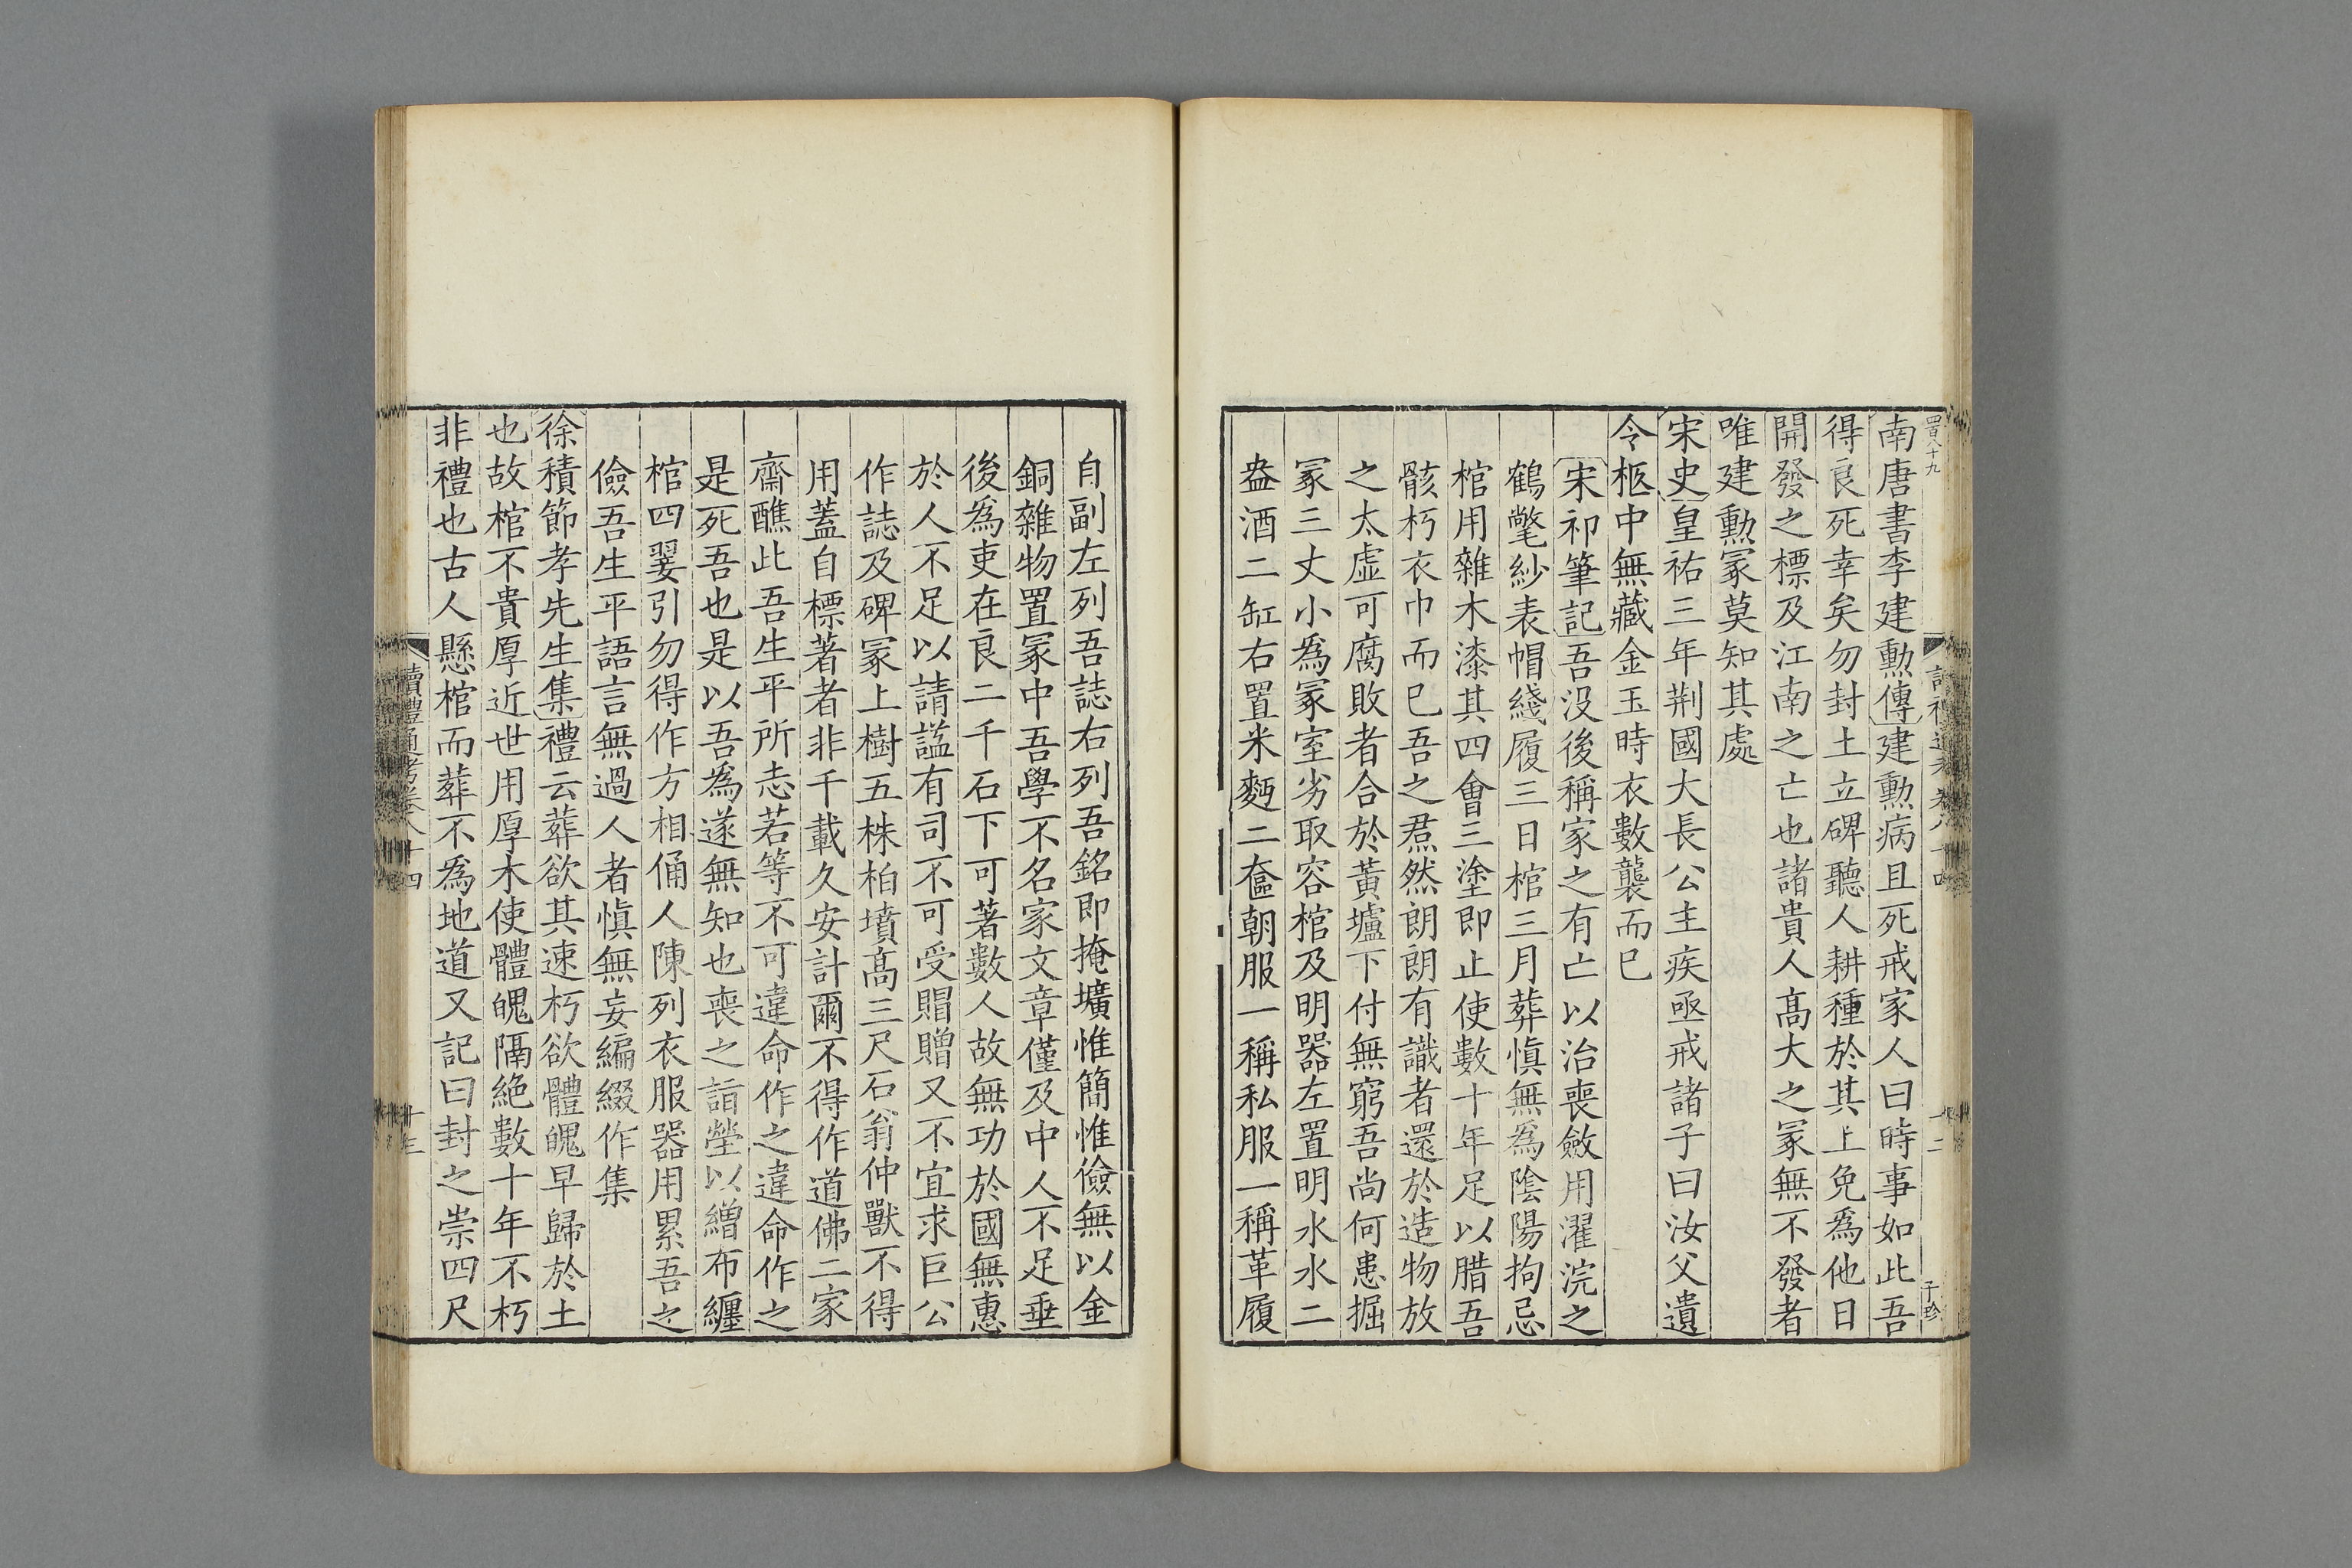 四百八十九
南唐書李建勲傳建勲病且死戒家人曰時事如此吾
得良死幸矣勿封土立碑聽人耕種於其上免爲他日
開發之標及江南之亡也諸貴人髙大之冢無不發者
唯建勲冢莫知其處
宋史皇祐三年荆國大長公主疾亟戒諸子曰汝父遺
令柩中無藏金玉時衣數襲而已
宋祁筆記吾没後稱家之有亡以治喪斂用濯浣之
鶴氅紗表帽綫履三日棺三月葬愼無爲陰陽拘忌
棺用雜木漆其四會三塗即止使數十年足以腊吾
骸朽衣巾而已吾之焄然朗朗有識者還於造物放
之太虚可腐敗者合於黃壚下付無窮吾尚何患掘
冢三丈小爲冢室劣取容棺及明器左置明水水二
盎酒二缸右置米麪二奩朝服一稱私服一稱革履
自副左列吾誌右列吾銘即掩壙惟簡惟儉無以金
銅雜物置冢中吾學不名家文章僅及中人不足垂
後爲吏在良二千石下可著數人故無功於國無惠
於人不足以請諡有司不可受賵贈又不宜求巨公
作誌及碑冢上樹五株柏墳髙三尺石翁仲獸不得
用蓋自標著者非千載久安計爾不得作道佛二家
齋醮此吾生平所志若等不可違命作之違命作之
是死吾也是以吾爲遂無知也喪之詣塋以繒布纏
棺四翣引勿得作方相俑人陳列衣服器用累吾之
儉吾生平語言無過人者愼無妄編綴作集
徐積節孝先生集禮云葬欲其速朽欲體魄早歸於土
也故棺不貴厚近世用厚木使體魄隔絶數十年不朽
非禮也古人懸棺而葬不爲地道又記曰封之崇四尺
讀禮通考卷八十四